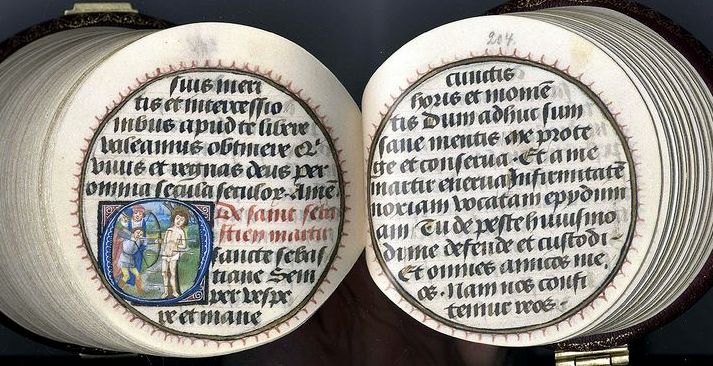 suis meri
tis et intercessio
nibus apud te libere
valeamus obtinere Q̄
vivis et regnas deus per
omnia secula seculor. Ame.
De sainc sebas
tien martir
sancte sebas
tiane Sem
per vespe
re et mane
204
cunctis
horis et momē
tis Dum adhuc sum
sane mentis me prote
ge et conserva. Et a me
martir enerva Infirmitatē
noxiam vocatam epydimi
am Tu de peste huiusmo
di me defende et custodi-
Et omnes amicos me
os. Nam nos confi
temur reos.